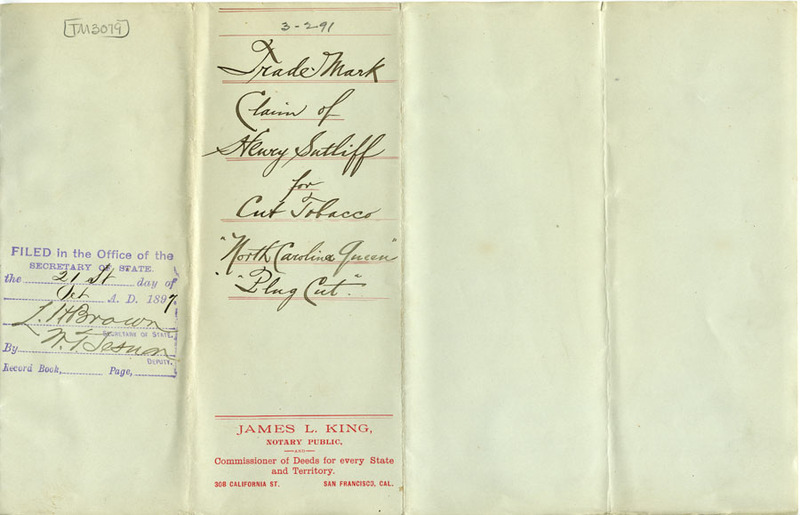 TM3079
FILED in the Office of the
SECRETARY OF STATE.
the 21st day of
Oct A. D. 1897
L. H. Brown
SECRETARY OF STATE.
By
DEPUTY.
Record Book, Page,
3-291
Trade-Mark
Claim of
Henry Sutliff
for
Cut Tobacco
"North Carolina Queen"
"Plug Cut".
JAMES L. KING,
NOTARY PUBLIC,
AND
Commissioner of Deeds for every State
and Territory.
308 CALIFORNIA ST. SAN FRANCISCO, CAL.